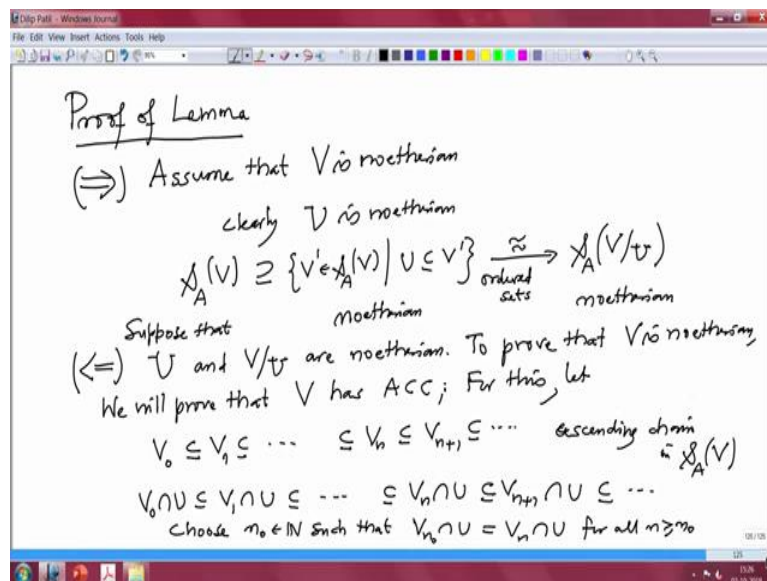 Dilip Patil - Windows Journal
File Edit View Insert Actions Tools Help
Proof of Lemma
(⇒) Assume that V is noetherian
clearly U is noetherian
S_A(V) ⊇ {V' ∈ S_A(V) | U ⊆ V'} ≈→ S_A(V/U)
ordered sets
noetherian noetherian
Suppose that
(<=) U and V/U are noetherian. To prove that V is noetherian,
We will prove that V has ACC; For this, let
V₀ ⊆ V₁ ⊆ ··· ⊆ Vₙ ⊆ Vₙ₊₁ ⊆ ···· ascending chain
in S_A(V)
V₀∩U ⊆ V₁∩U ⊆ ··· ⊆ Vₙ∩U ⊆ Vₙ₊₁∩U ⊆ ···
choose n₀ ∈ IN such that Vₙ₀∩U = Vₙ∩U for all n≥n₀
125/125
125
15:26